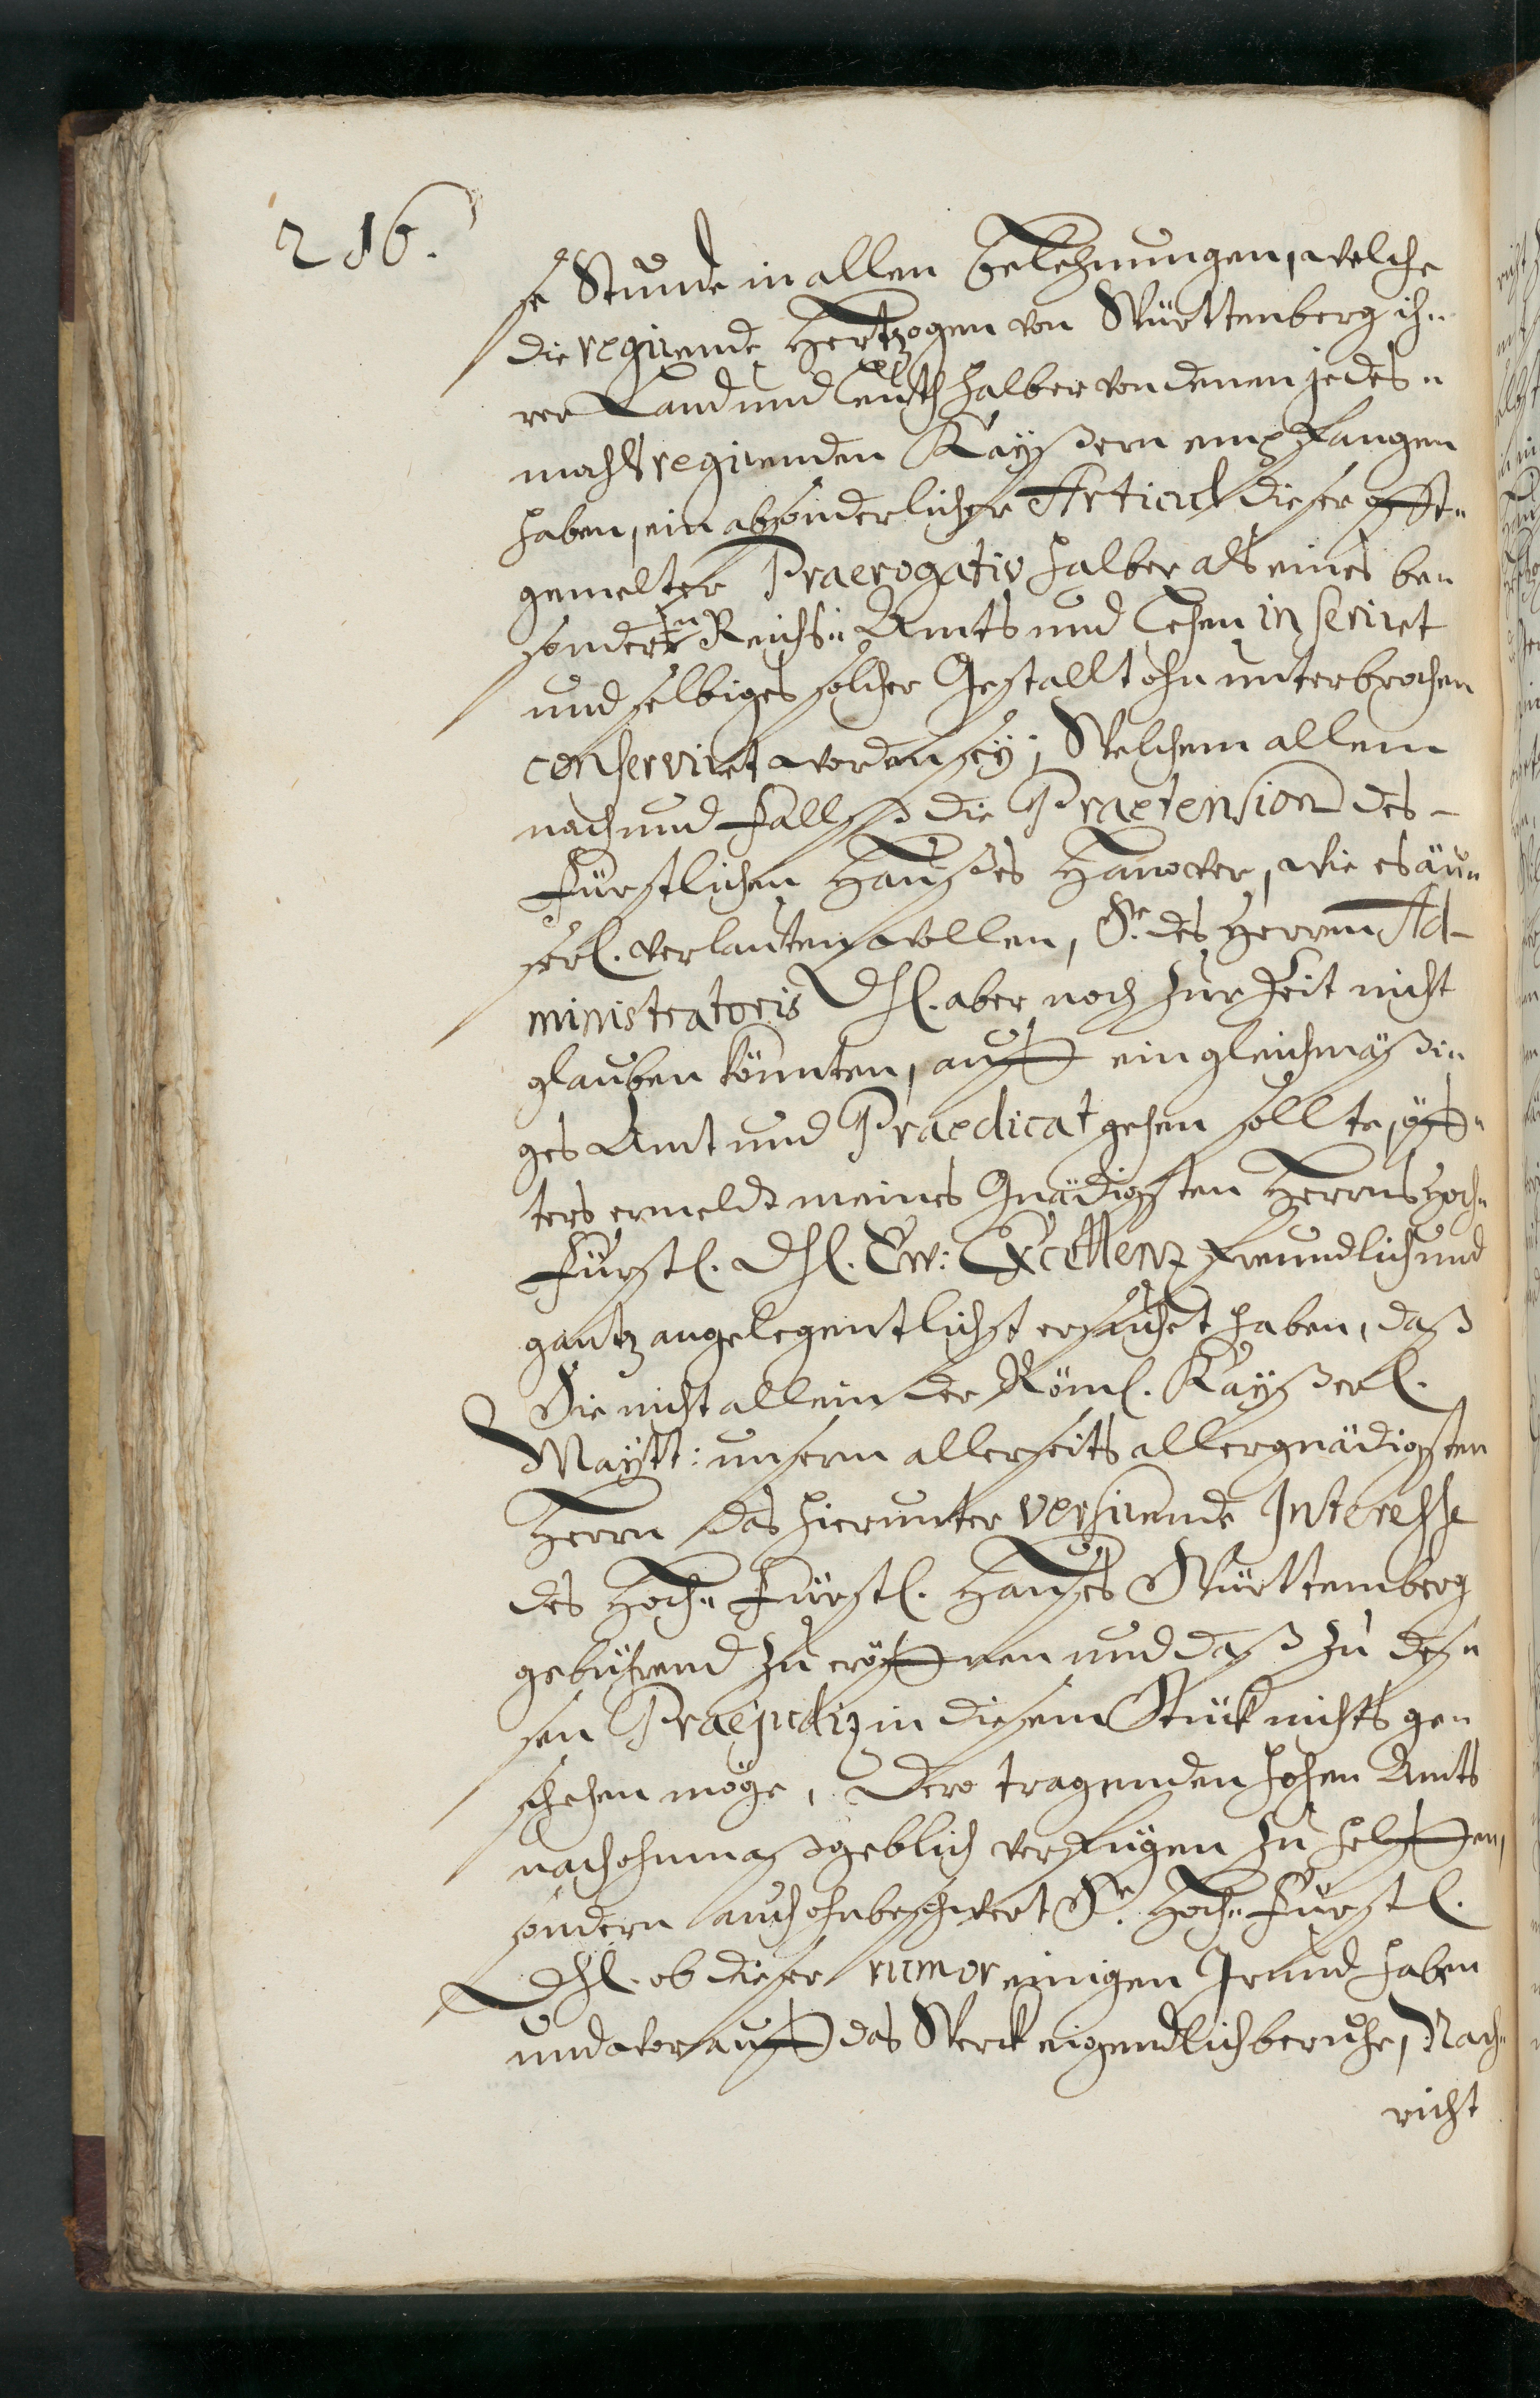 216.
se Stunde in allen Belehnungen, welche
die regirende Hertzogen von Württenberg ih=
rer Land und Leuth halber von denen jedes=
mahls regirenden Kayßern empfangen
haben, ein absonderlicher Articul dieser offt=
gemelter Praerogativ halber als eines be=
sondern Reichs= Amts und Lehen inseriret
und selbiges solcher Gestallt ohnunterbrochen
conserviret worden sey; Welchem allem
nach und fallß die Praetension des
Fürstlichen Haußes Hanover, wie es äu=
serl. verlauten wollen, Sr. des Herren Ad-
ministratoris Dhl. aber noch zur Zeit nicht
glauben könnten, auff ein gleichmäßi=
ges Amt und Praedicat gehen sollte, öff=
ters ermeldt meines Gnädigsten Herrns Hoch=
Fürstl. Dhl. Ew: Excellenz freundlich und
gantz angelegentlichst ersuchet haben, daß
Sie nicht allein der Röml. Kayßerl.
Maytt: unserm allerseits allergnädigsten
Herrn das hierunter versirende Interesse
des Hoch= Fürstl. Hauses Württemberg
gebührend zu eröffnen und daß zu des=
sen Praejudiz in diesem Stück nichts ge=
schehen möge, Dero tragenden hohen Amts
nach ohnmaßgeblich verfügen zu helffen,
sondern auch ohnbeschwert Sr. Hoch= Fürstl.
Dhl. ob dieser rumor einigen Grund haben
und worauff das Werck eigendlich beruhe, Nach=
richt